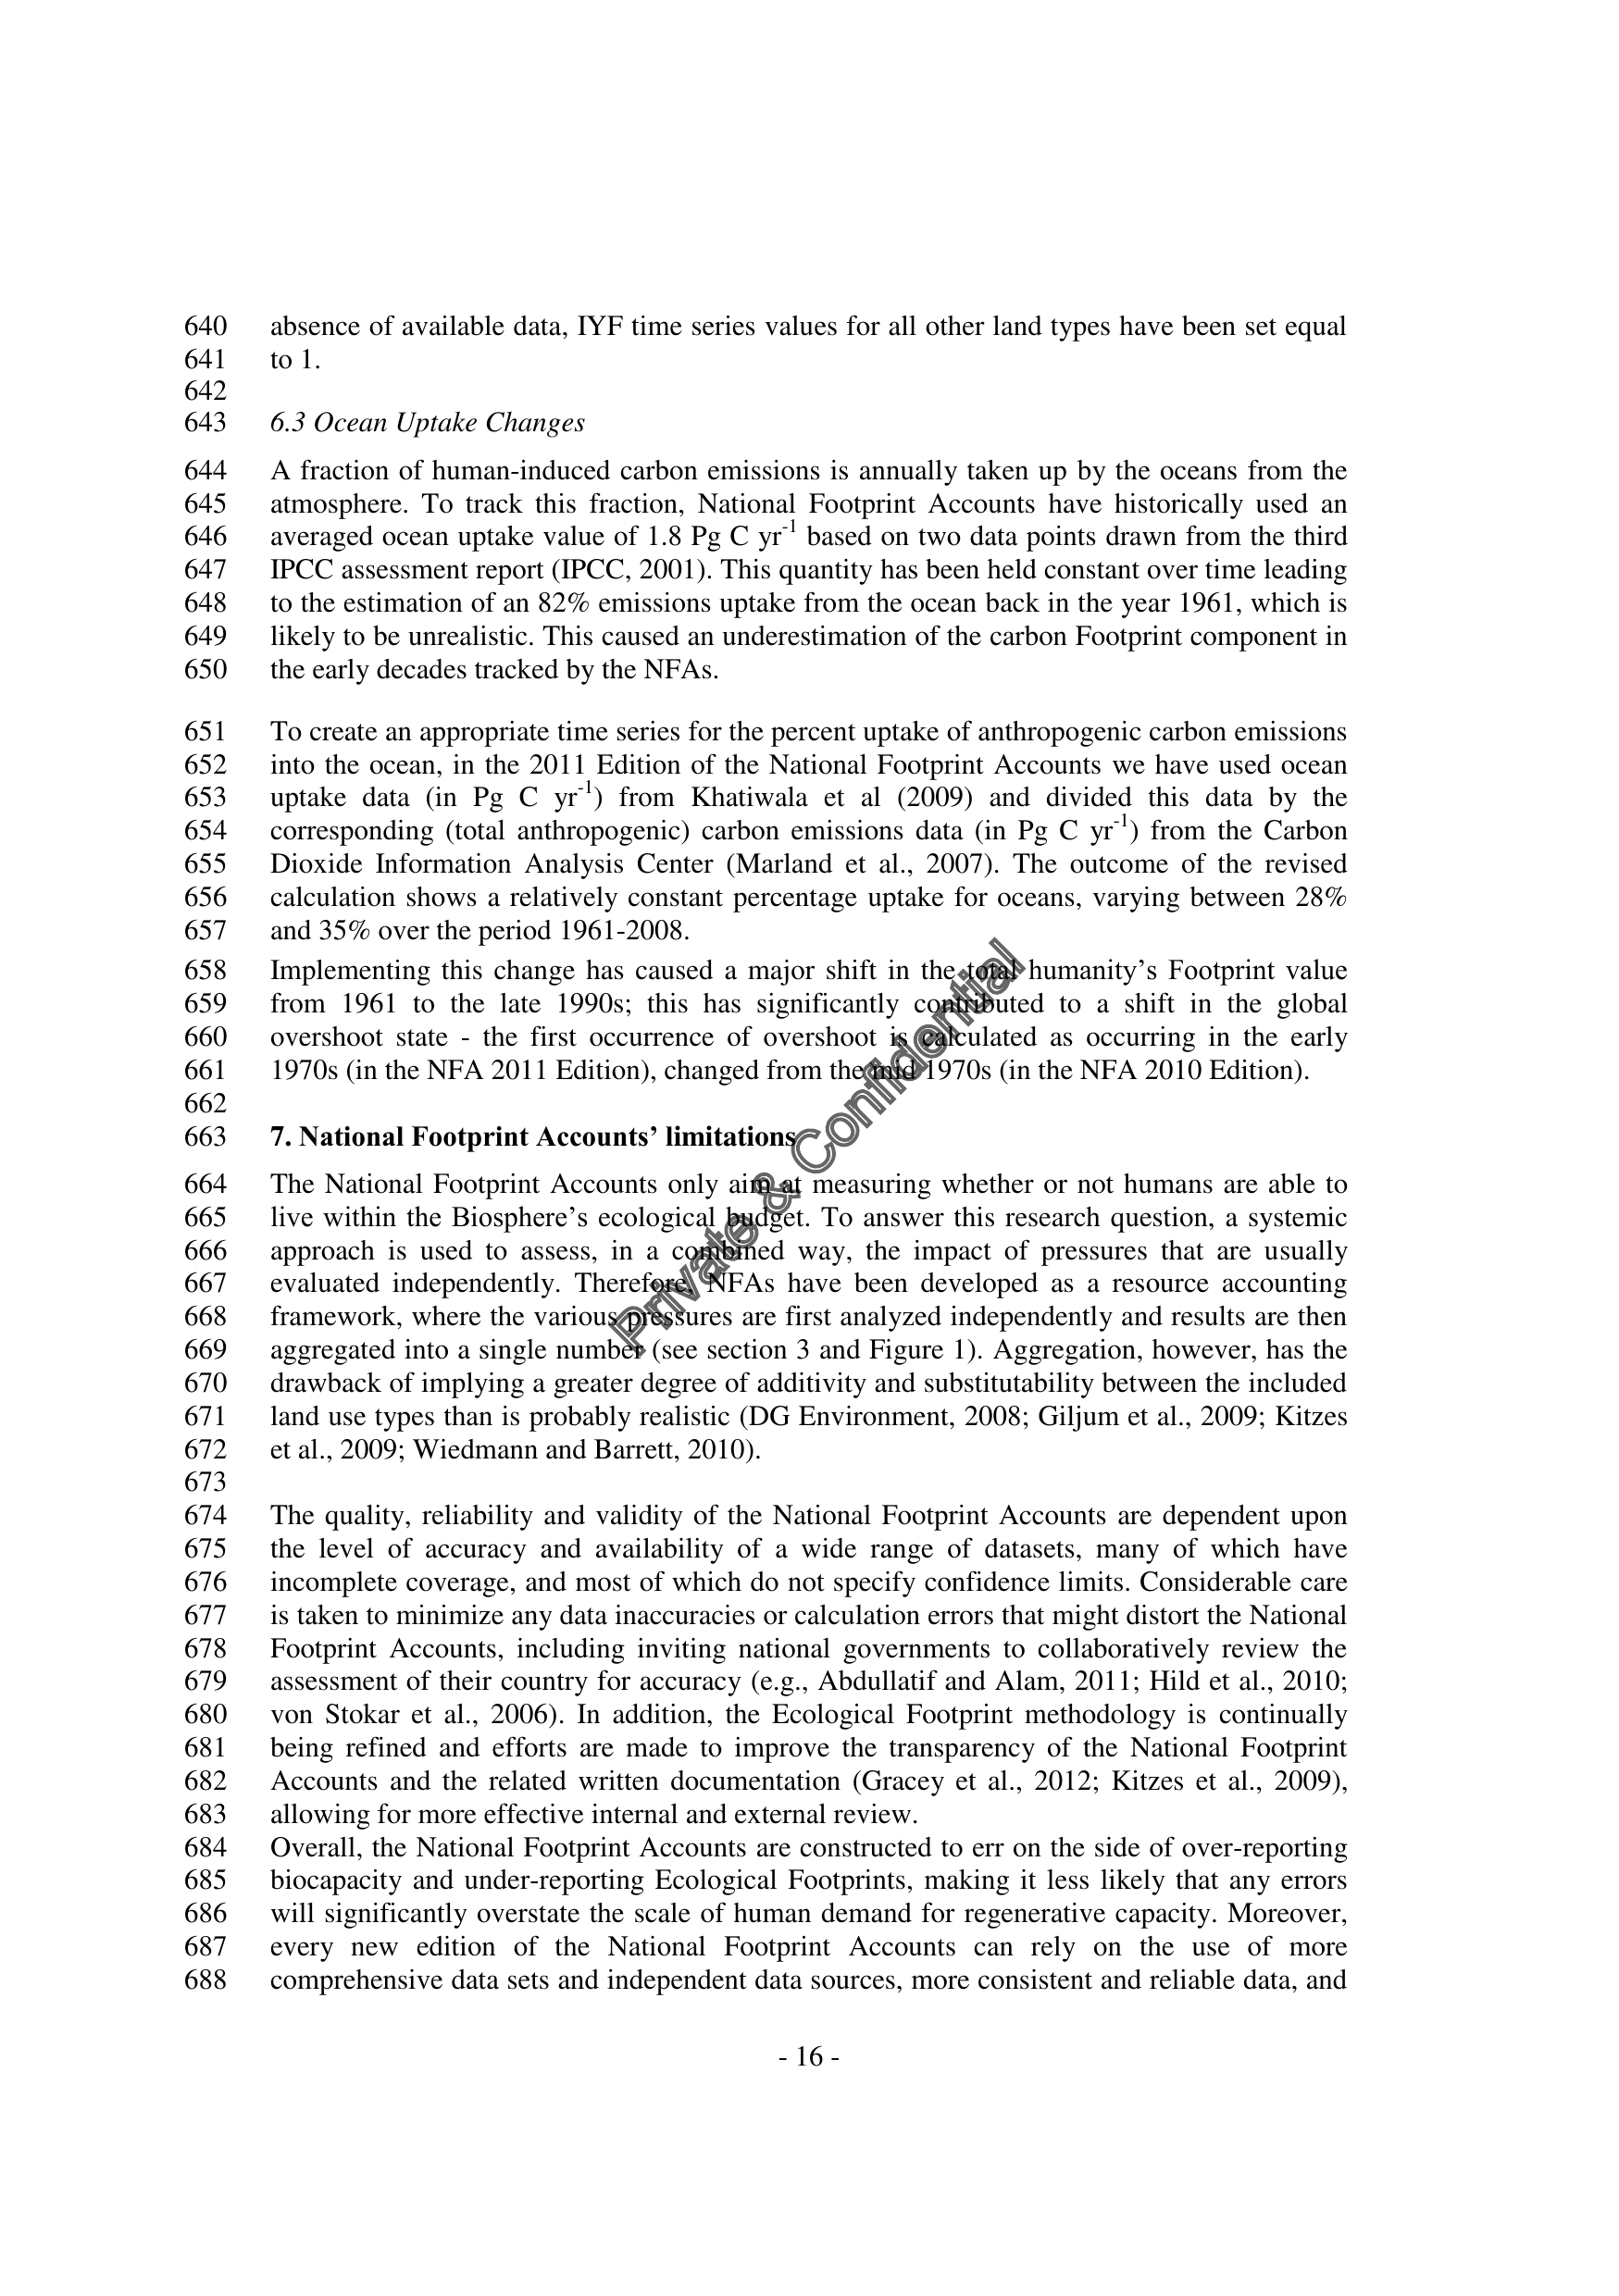 640 absence of available data, IYF time series values for all other land types have been set equal
641 to 1.
642
643 6.3 Ocean Uptake Changes
644 A fraction of human-induced carbon emissions is annually taken up by the oceans from the
645 atmosphere. To track this fraction, National Footprint Accounts have historically used an
646 averaged ocean uptake value of 1.8 Pg C yr-1 based on two data points drawn from the third
647 IPCC assessment report (IPCC, 2001). This quantity has been held constant over time leading
648 to the estimation of an 82% emissions uptake from the ocean back in the year 1961, which is
649 likely to be unrealistic. This caused an underestimation of the carbon Footprint component in
650 the early decades tracked by the NFAs.
651 To create an appropriate time series for the percent uptake of anthropogenic carbon emissions
652 into the ocean, in the 2011 Edition of the National Footprint Accounts we have used ocean
653 uptake data (in Pg C yr-1) from Khatiwala et al (2009) and divided this data by the
654 corresponding (total anthropogenic) carbon emissions data (in Pg C yr-1) from the Carbon
655 Dioxide Information Analysis Center (Marland et al., 2007). The outcome of the revised
656 calculation shows a relatively constant percentage uptake for oceans, varying between 28%
657 and 35% over the period 1961-2008.
658 Implementing this change has caused a major shift in the total humanity's Footprint value
659 from 1961 to the late 1990s; this has significantly contributed to a shift in the global
660 overshoot state - the first occurrence of overshoot is calculated as occurring in the early
661 1970s (in the NFA 2011 Edition), changed from the mid 1970s (in the NFA 2010 Edition).
662
663 7. National Footprint Accounts' limitations
664 The National Footprint Accounts only aim at measuring whether or not humans are able to
665 live within the Biosphere's ecological budget. To answer this research question, a systemic
666 approach is used to assess, in a combined way, the impact of pressures that are usually
667 evaluated independently. Therefore, NFAs have been developed as a resource accounting
668 framework, where the various pressures are first analyzed independently and results are then
669 aggregated into a single number (see section 3 and Figure 1). Aggregation, however, has the
670 drawback of implying a greater degree of additivity and substitutability between the included
671 land use types than is probably realistic (DG Environment, 2008; Giljum et al., 2009; Kitzes
672 et al., 2009; Wiedmann and Barrett, 2010).
673
674 The quality, reliability and validity of the National Footprint Accounts are dependent upon
675 the level of accuracy and availability of a wide range of datasets, many of which have
676 incomplete coverage, and most of which do not specify confidence limits. Considerable care
677 is taken to minimize any data inaccuracies or calculation errors that might distort the National
678 Footprint Accounts, including inviting national governments to collaboratively review the
679 assessment of their country for accuracy (e.g., Abdullatif and Alam, 2011; Hild et al., 2010;
680 von Stokar et al., 2006). In addition, the Ecological Footprint methodology is continually
681 being refined and efforts are made to improve the transparency of the National Footprint
682 Accounts and the related written documentation (Gracey et al., 2012; Kitzes et al., 2009),
683 allowing for more effective internal and external review.
684 Overall, the National Footprint Accounts are constructed to err on the side of over-reporting
685 biocapacity and under-reporting Ecological Footprints, making it less likely that any errors
686 will significantly overstate the scale of human demand for regenerative capacity. Moreover,
687 every new edition of the National Footprint Accounts can rely on the use of more
688 comprehensive data sets and independent data sources, more consistent and reliable data, and
Private & Confidential
- 16 -